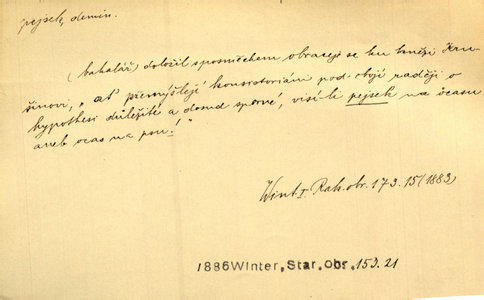 pejsek, demin.
(bakalář) doložil s posměchem obraceje se ku knězi Kru-
šinovi, „ať přemýšlejí konsistoriáni pod obojí raději o
hypothesi důležité a dosud sporné, visí-li pejsek na ocasu
aneb ocas na psu!"
Wint. I. Rak. obr. 173. 15 (1883)
1886 Winter, Star. obr. 153. 21